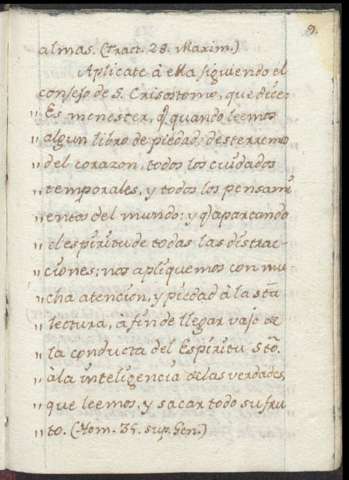 9.
almas. (Tract. 28. Maxim.)
Aplicate à ella siguiendo el
consejo de S. Crisostomo, que dice:
"Es menester, q̃ quando leemos
"algun libro de piedad, desterremos
"del corazon, todos los cuidados
"temporales, y todos los pensami
"entos del mundo: y q̃ apartando
"el espiritu de todas las distrac-
"ciones; nos apliquemos con mu
"cha atencion, y piedad à la sta
"lectura, à fin de llegar vajo de
"la conducta del Espiritu Sto.
"à la inteligencia de las verdades,
"que leemos, y sacar todo su fru
"to. (Hom. 35. sup. Gen.)